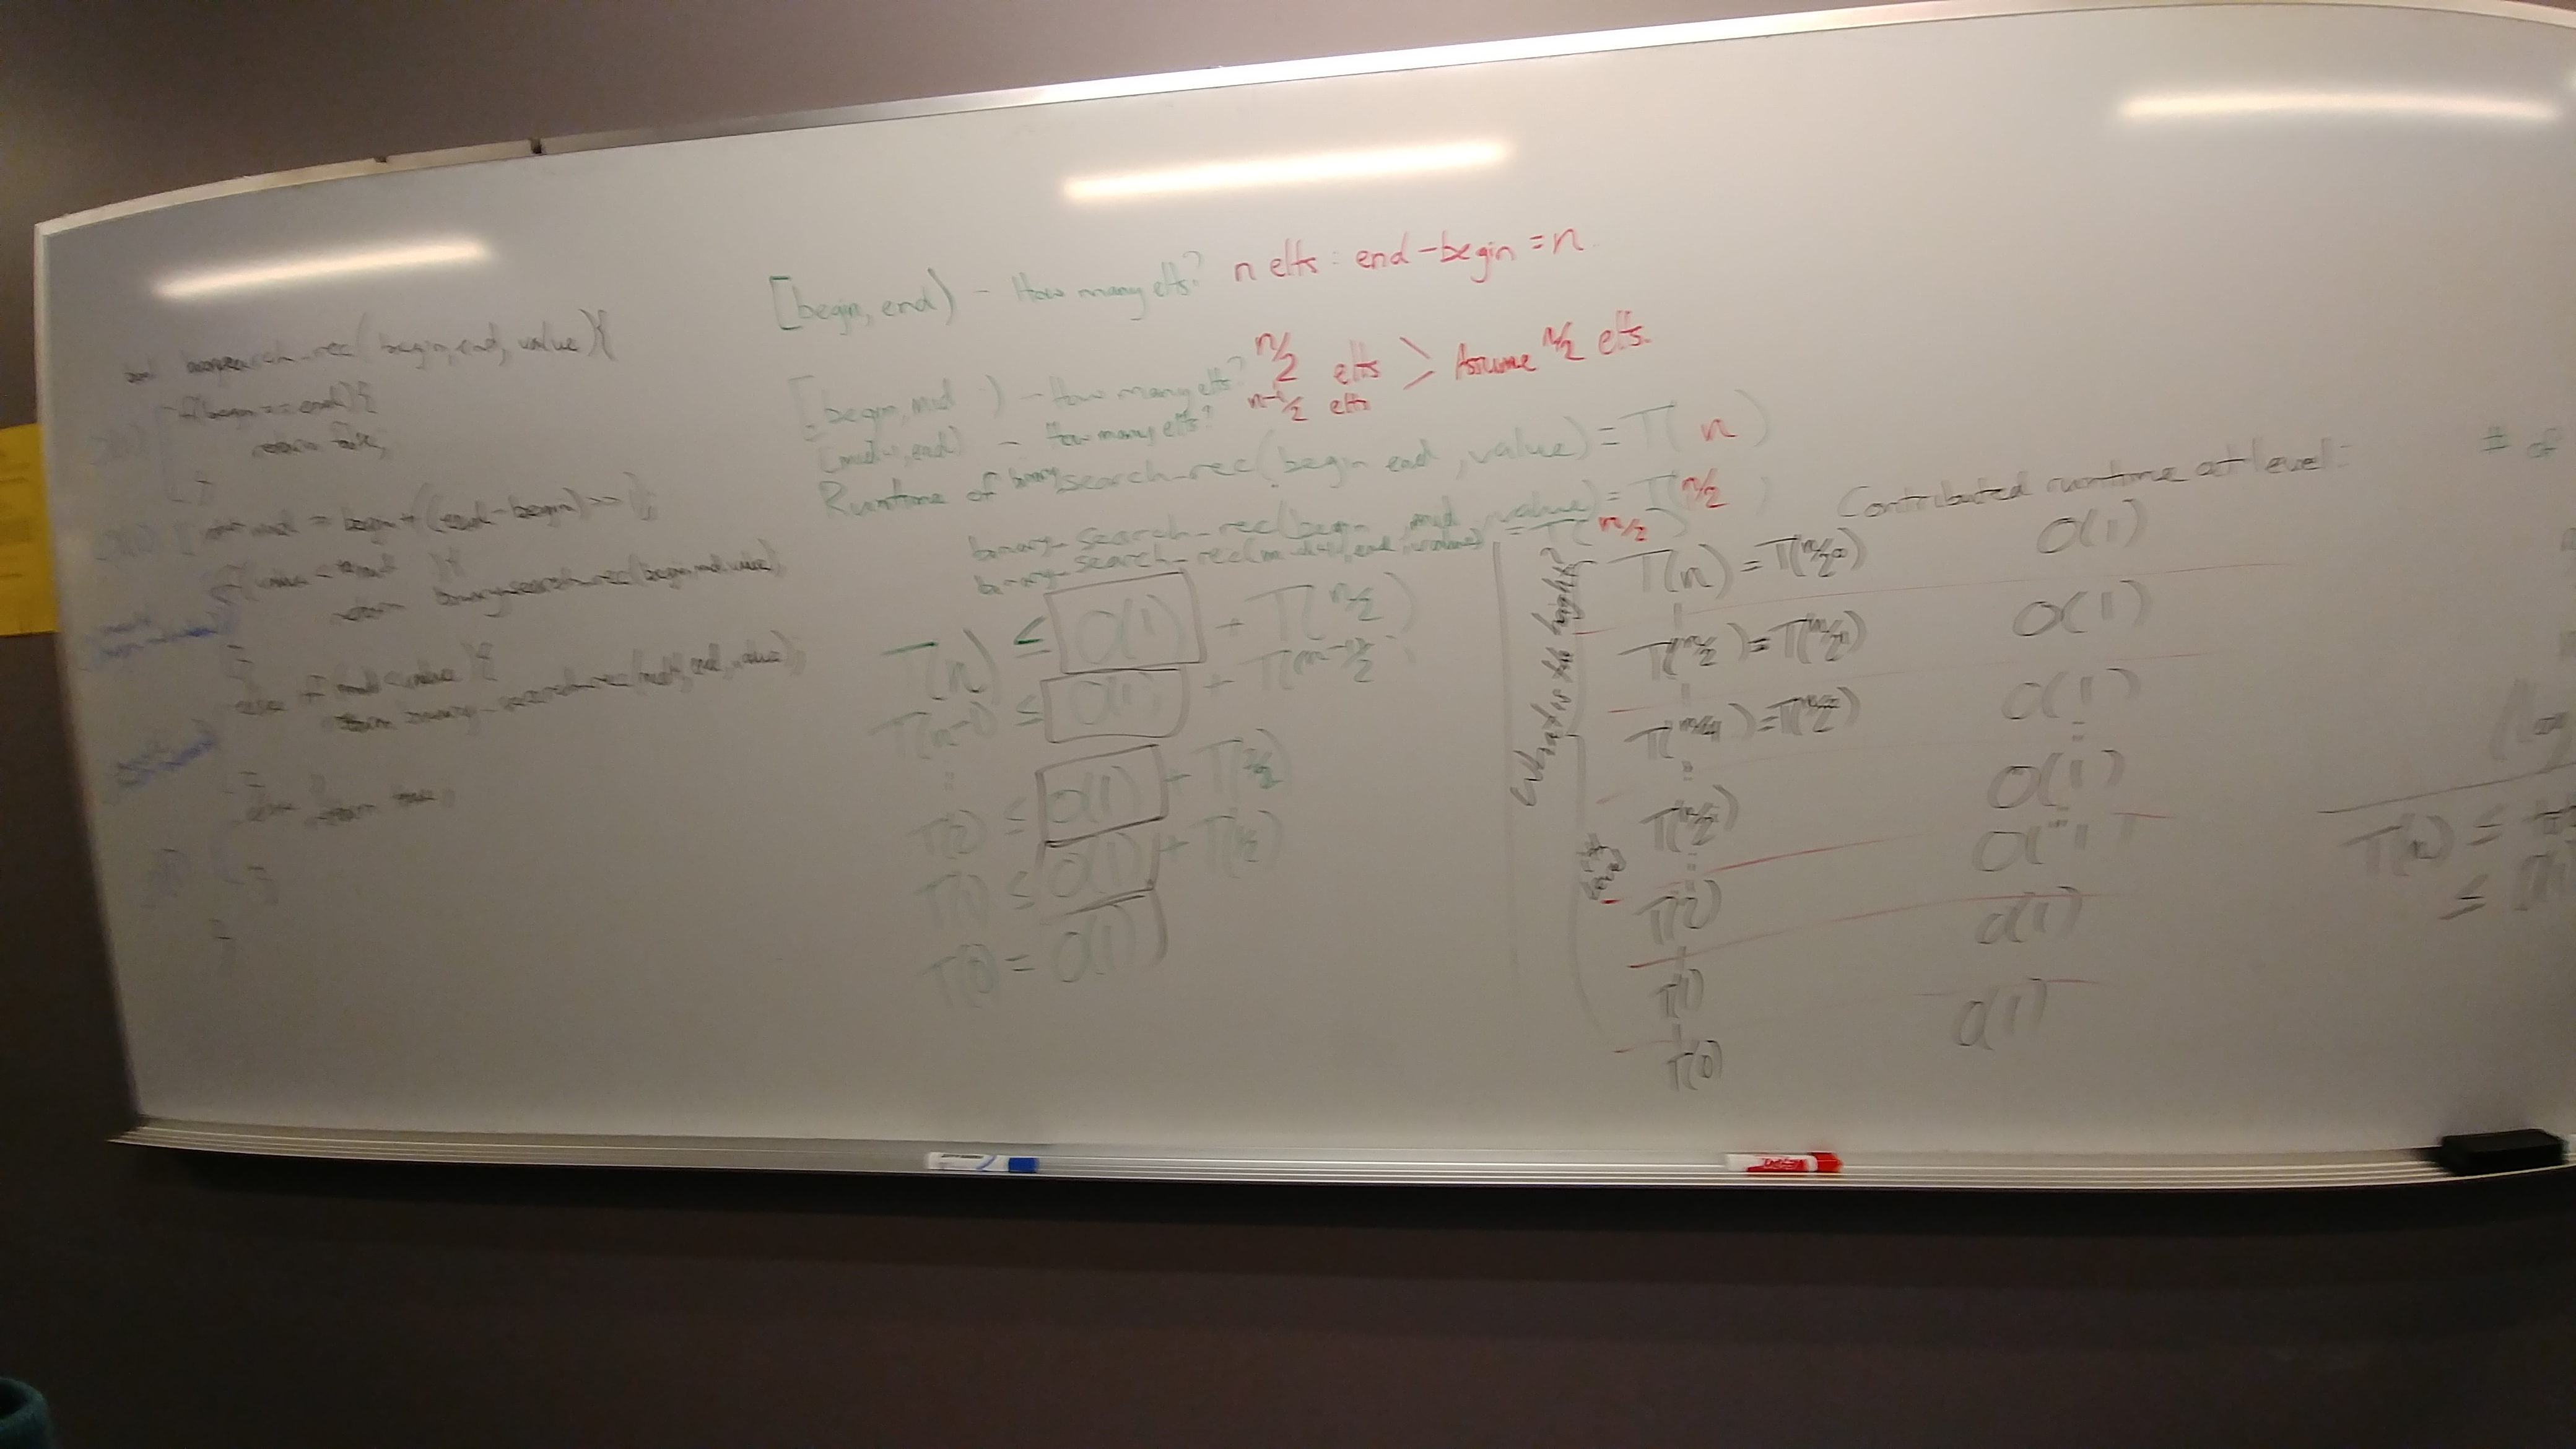 bool binarysearch_rec(begin, end, value){
if(begin == end){
return false;
}
int mid = begin + ((end-begin)>>1);
if(value < mid){
return binarysearch_rec(begin, mid, value);
}
else if mid < value){
return binary_search_rec(mid+1, end, value);
}
else
return true;
}
}
[begin, end) - How many elts? n elts: end-begin = n
[begin, mid ) - How many elts? n/2 elts > Assume n/2 elts.
[mid+1, end) - How many elts? n-1/2 elts
Runtime of binarysearch_rec(begin end, value) = T( n )
binary_search_rec(begin, mid, value) = T(n/2 )
binary_search_rec(mid+1, end, value) = T( n/2 )
T(n) ≤ O(1) + T(n/2)
T(n-1) ≤ O(1) + T(n-1/2)
:
T(2) ≤ O(1) + T(2/2)
T(1) ≤ O(1) + T(1/2)
T(0) = O(1)
What is the height?
Contributed runtime at level:
T(n) = T(n/2^0) O(1)
T(n/2) = T(n/2^1) O(1)
T(n/4) = T(n/2^2) O(1)
: :
O(1)
: :
T(2) O(1)
T(1) O(1)
T(0) O(1)
# of
T(n) ≤
≤